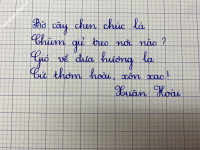 Bờ cây chen chúc lá
Chùm giẻ treo nơi nào?
Gió về đưa hương lạ
Cứ thơm hoài, xôn xao!
Xuân Hoài